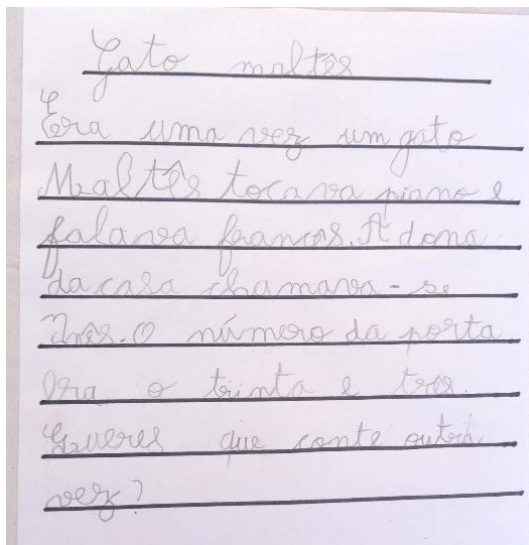 Gato maltês
Era uma vez um gato
Maltês tocava piano e
falava francos. A dona
da casa chamava-se
Inês. O número da porta
Era o trinta e tres.
Queres que conte outra
vez?